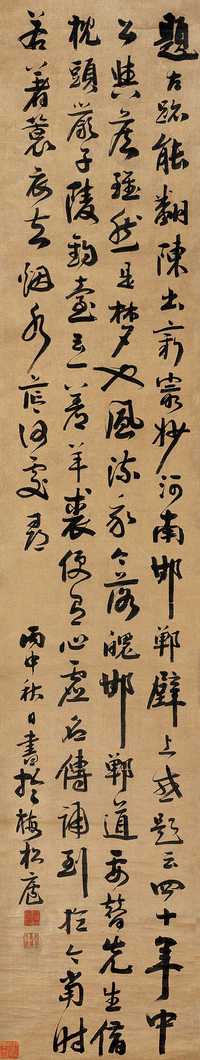 題古跡能翻陳出新最妙河南邯鄲壁上或題云四十年中
公與侯雖然是夢也風流我今落魄邯鄲道要替先生借
枕頭嚴子陵釣臺云一着羊裘便有心虛名傳誦到於今當時
若著蓑衣去烟水茫茫何處尋
丙申秋日書於梅松廬